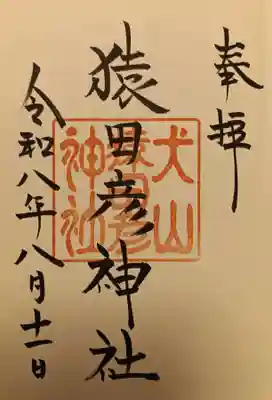 奉拝
猿田彦神社
犬山
猿田彦
神社
令和八年八月十一日